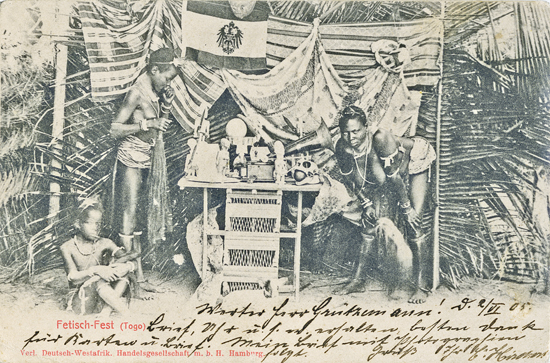 Werter Herr Grützmann! D. 2/VI 05.
Fetisch-Fest (Togo)
Brief, Uhr u. s. w. erhalten, besten Dank
für Karten u. Brief. Mein Brief mit
Verl. Deutsch-Westafrik. Handelsgesellschaft m. b. H. Hamburg.
folgt.